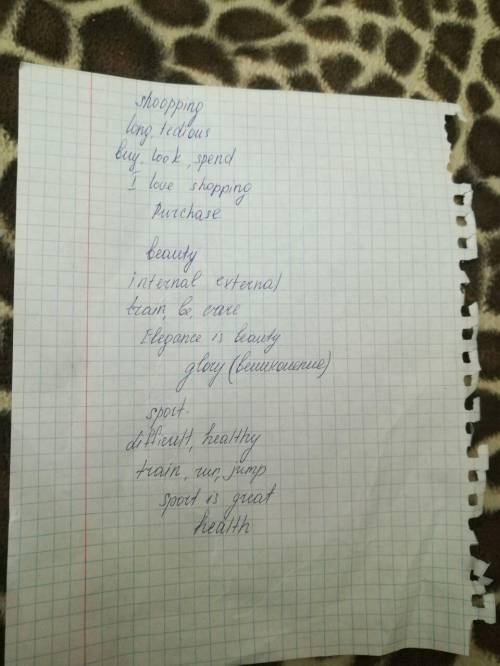 shoopping
long, tedious
buy, look, spend
I love shopping
Purchase
beauty
internal external
train, be, care
Elegance is beauty
glory (великолепие)
sport
difficult, healthy
train, run, jump
sport is great
health